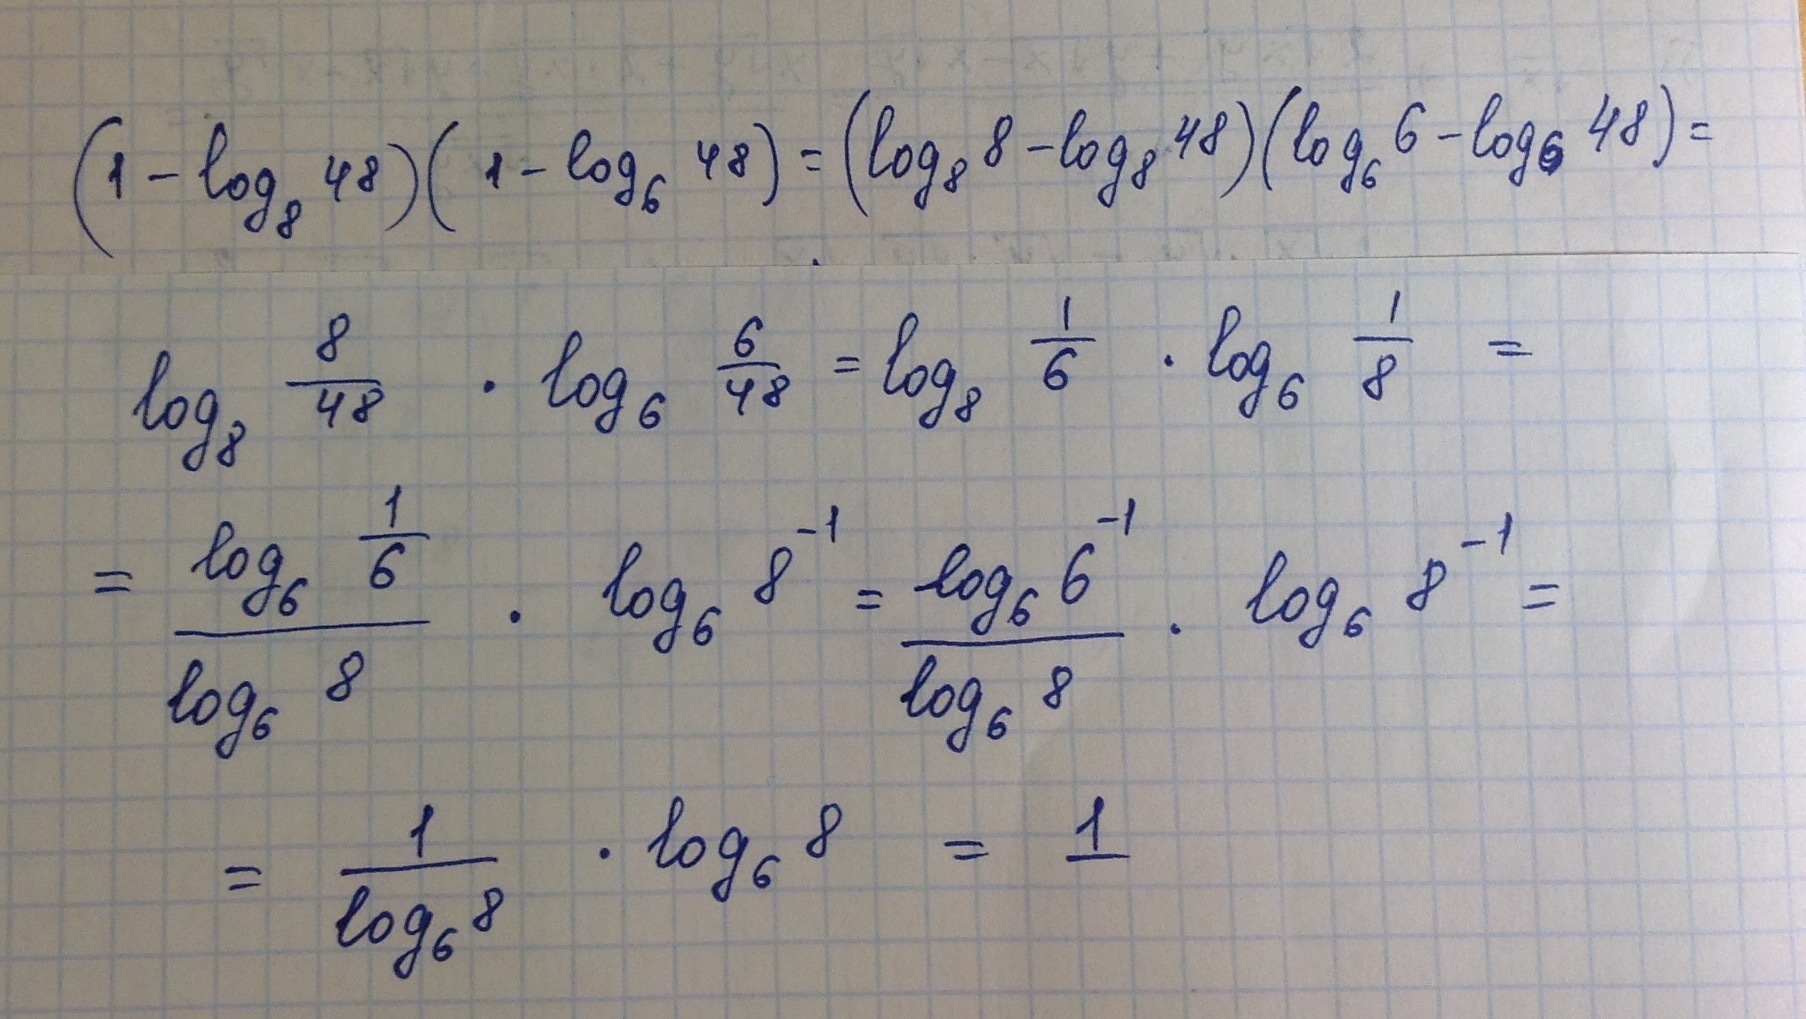 (1 - log₈ 48)(1 - log₆ 48) = (log₈ 8 - log₈ 48)(log₆ 6 - log₆ 48) =
log₈ 8/48 · log₆ 6/48 = log₈ 1/6 · log₆ 1/8 =
= (log₆ 1/6)/(log₆ 8) · log₆ 8⁻¹ = (log₆ 6⁻¹)/(log₆ 8) · log₆ 8⁻¹ =
= 1/(log₆ 8) · log₆ 8 = 1